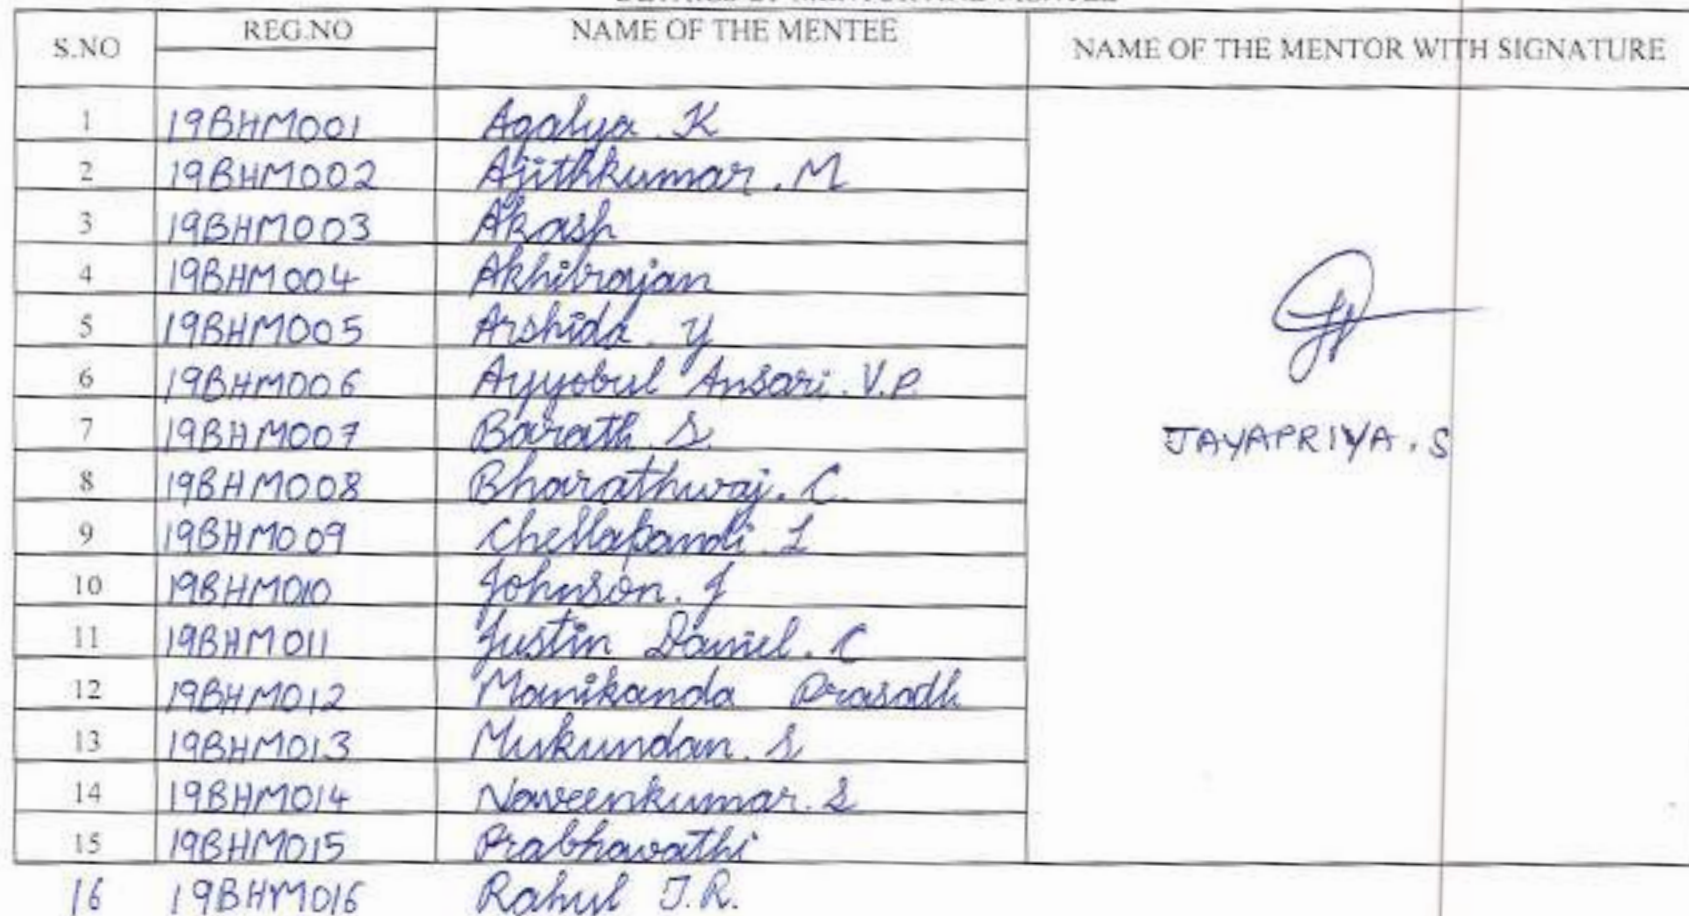 S.NO REG.NO NAME OF THE MENTEE NAME OF THE MENTOR WITH SIGNATURE
1 19BHM001 Agalya . K
2 19BHM002 Ajithkumar . M
3 19BHM003 Akash
4 19BHM004 Akhilrajan
5 19BHM005 Arshida . Y
6 19BHM006 Ayyobul Ansari . V.P.
7 19BHM007 Barath . S
JAYAPRIYA . S
8 19BHM008 Bharathwaj . C
9 19BHM009 Chellapandi . L
10 19BHM010 Johnson . J
11 19BHM011 Justin Daniel . C
12 19BHM012 Manikanda Prasadh
13 19BHM013 Mukundan . S
14 19BHM014 Naveenkumar . S
15 19BHM015 Prabhavathi
16 19BHM016 Rahul J.R.